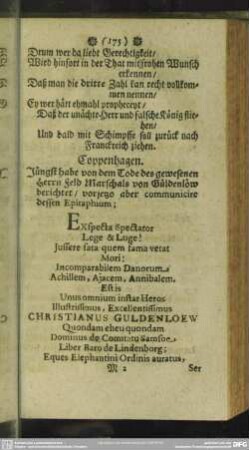 (175)
Drum wer da liebt Gerechtigkeit/
Wird hinfort in der That mit frohen Wunsch
erkennen/
Daß man die dritte Zahl kan recht vollkom-
men nennen/
Ey wer hätt ehmahl propheceyt/
Daß der unächte Herr und falsche König flie-
hen/
Und bald mit Schimpffe soll zurück nach
Franckreich ziehen.
Coppenhagen.
Jüngst habe von dem Tode des gewesenen
Herrn Feld Marschals von Güldenlöw
berichtet/ vorjetzo aber communicire
dessen Epitaphium:
EXspecta Spectator
Lege & Luge!
Jussere fata quem fama vetat
Mori:
Incomparabilem Danorum
Achillem, Ajacem, Annibalem.
Est is
Unus omnium instar Heros
Illustrissimus, Excellentissimus
CHRISTIANUS GULDENLOEW
Quondam eheu quondam
Dominus de Comitatu Samsoe
Liber Baro de Lindenborg;
Eques Elephantini Ordinis auratus,
M 2 Ser